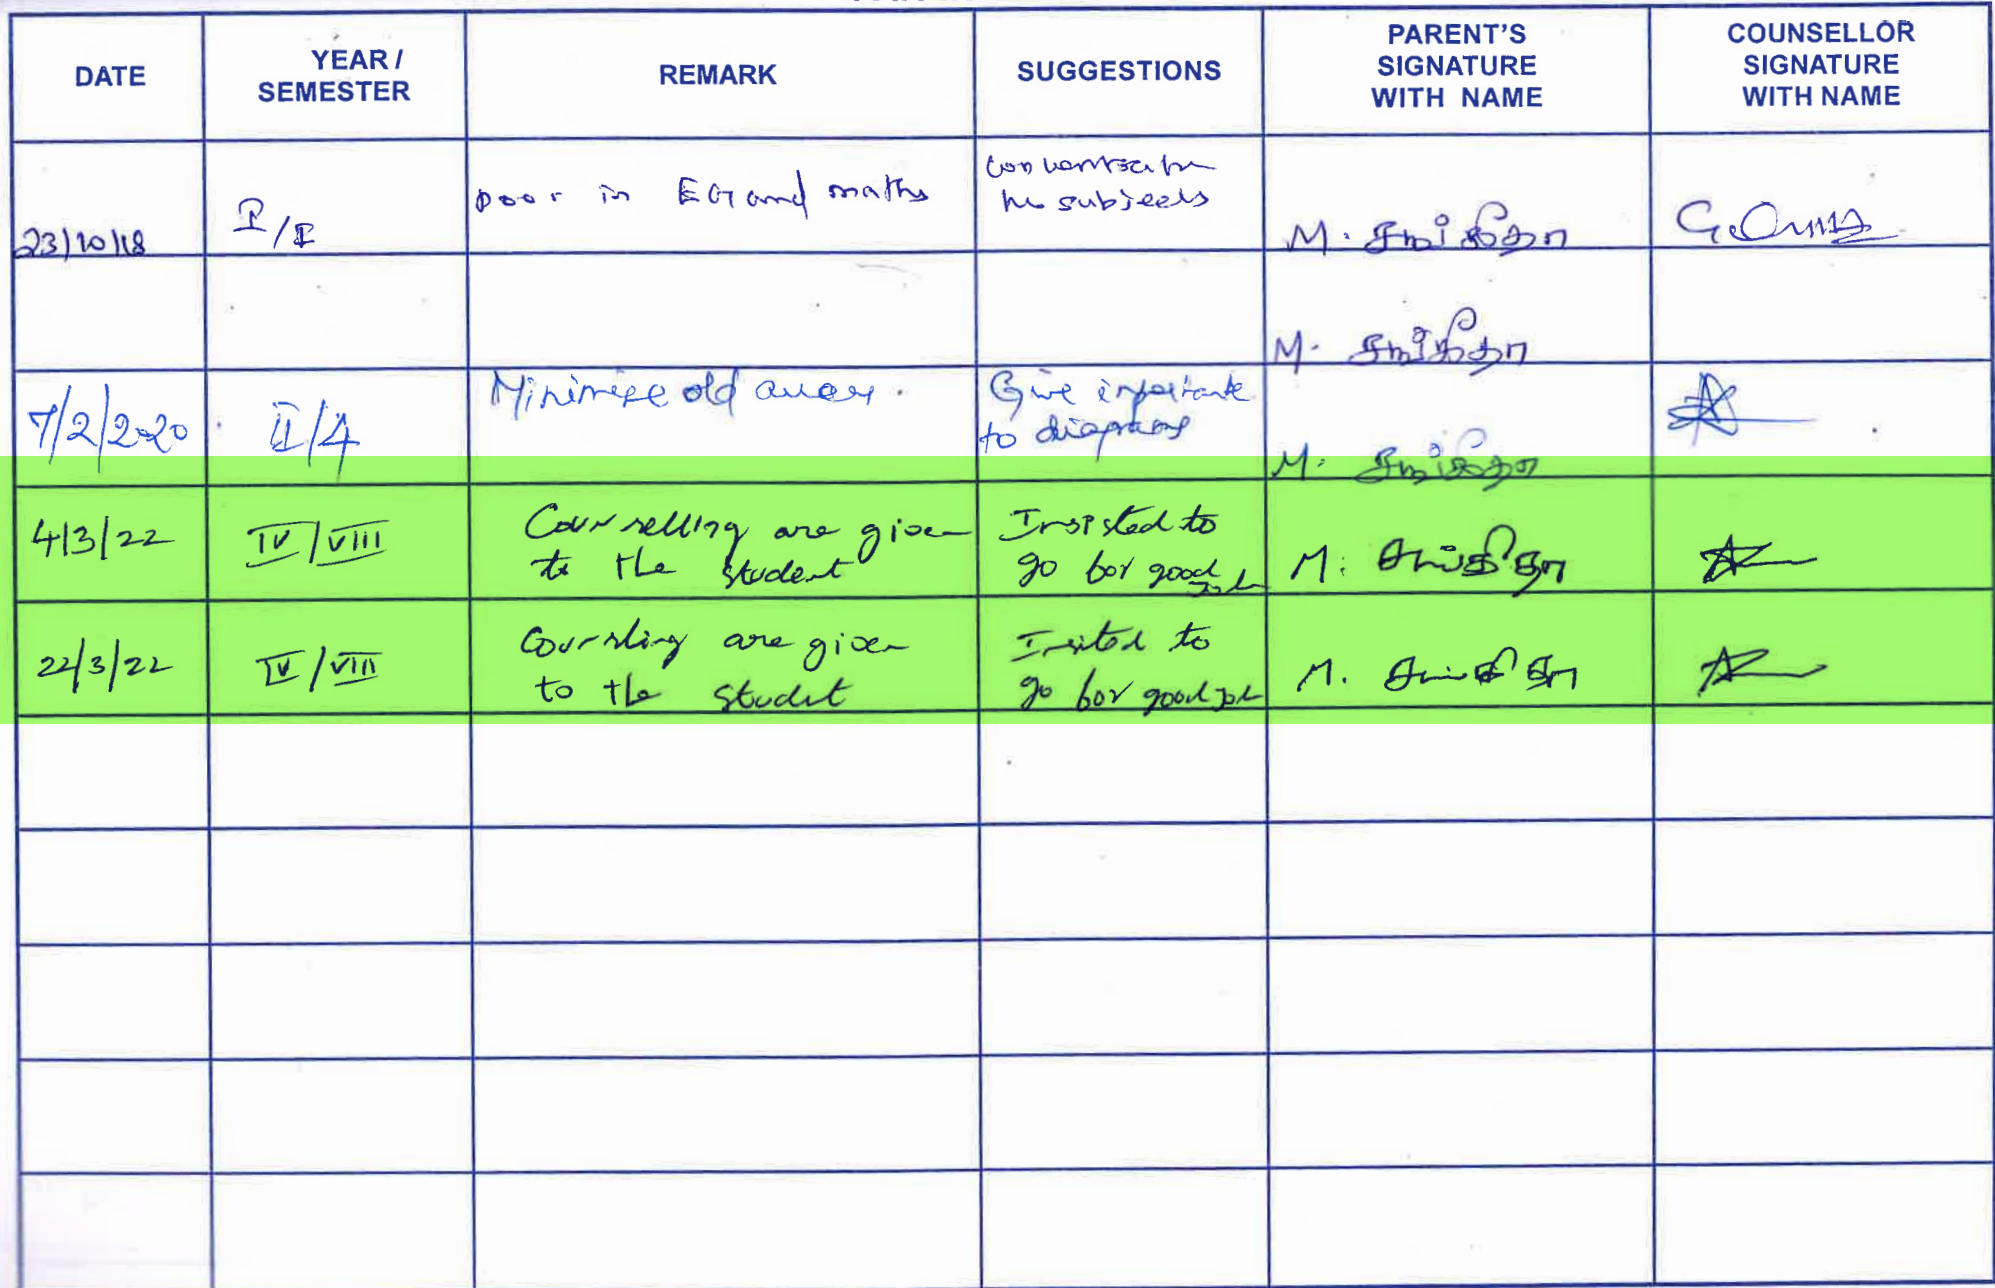 DATE
YEAR /
SEMESTER
REMARK
SUGGESTIONS
PARENT'S
SIGNATURE
WITH NAME
COUNSELLOR
SIGNATURE
WITH NAME
23/10/18
I/I
poor in EG and maths
subjects
M. சங்கீதா
M. சங்கீதா
7/2/2020
II/4
Minimise old
Give importante
to diagrams
M. சங்கீதா
4/3/22
IV/VIII
Counselling are given
to the student
Insisted to
go for good job
M. சங்கீதா
22/3/22
IV/VIII
Counsling are given
to the studet
Insited to
go for good job
M. சங்கீதா